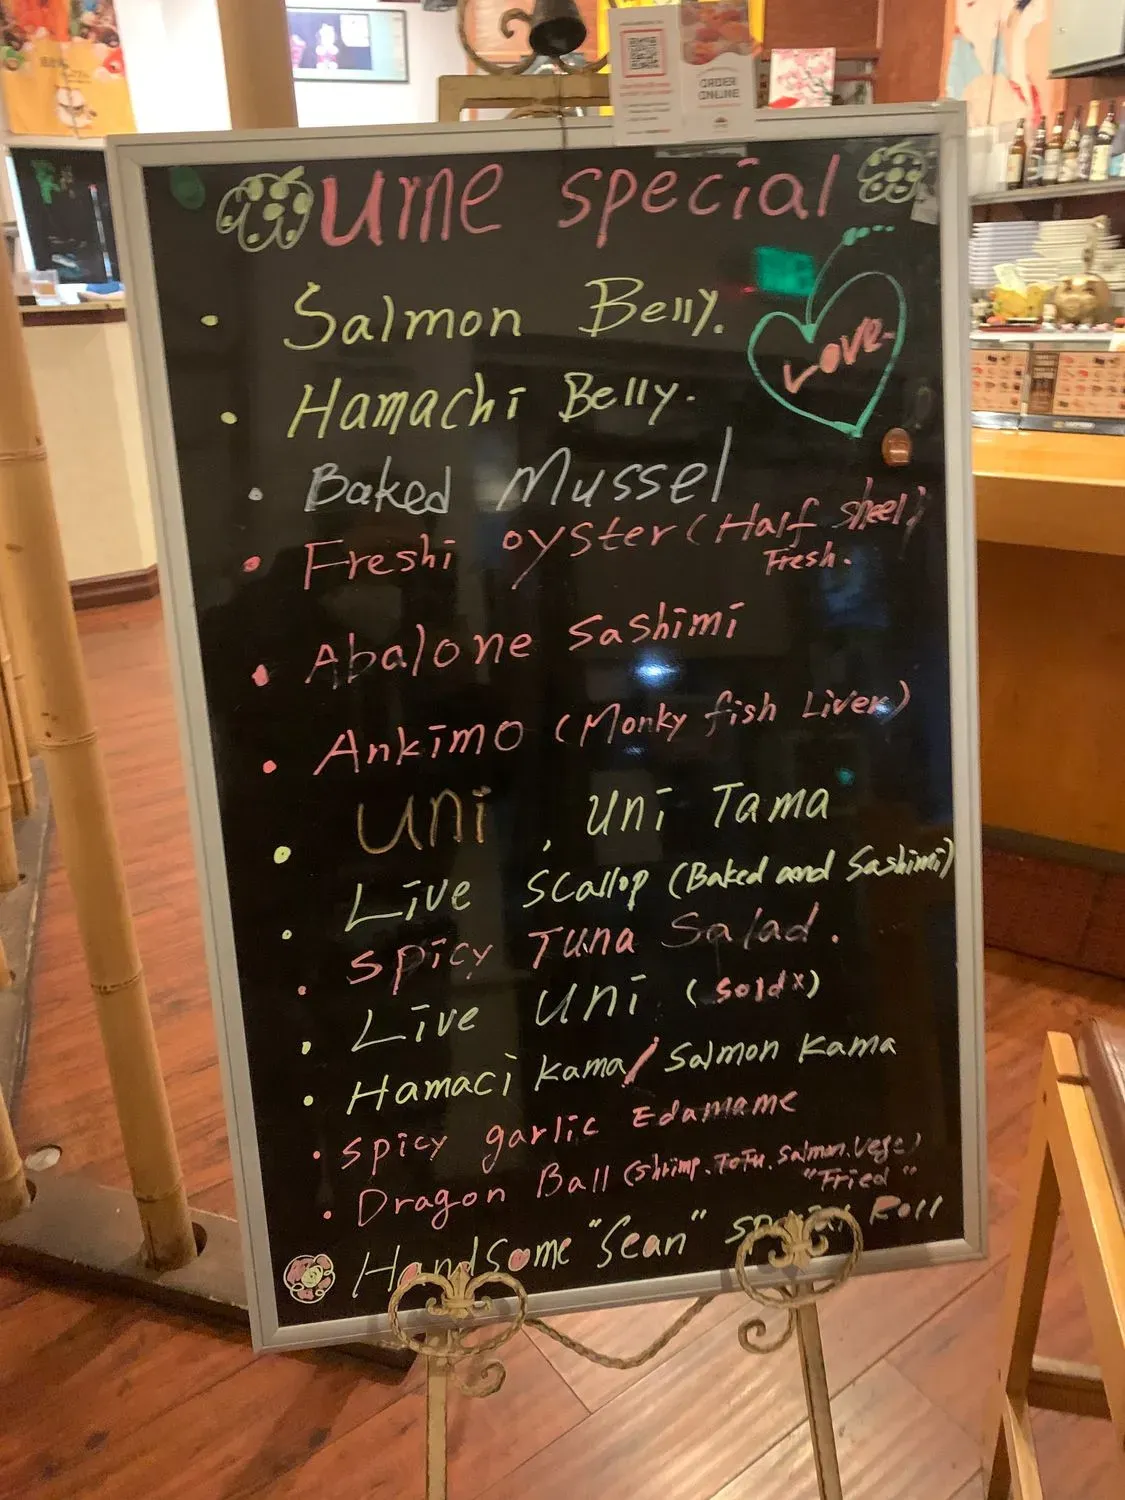 ORDER
ONLINE
ume special
Salmon Belly.
LOVE.
Hamachi Belly.
Baked Mussel
Freshi oyster (Half sheel)
Fresh.
Abalone Sashimi
Ankimo (Monky fish Liver)
uni , uni Tama
Live Scallop (Baked and Sashimi)
Spicy Tuna Salad.
Live uni (soldx)
Hamaci kama/ Salmon kama
spicy garlic Edamame
Dragon Ball (shrimp. ToFu. Salmon. Vege)
"Fried"
Handsome "Sean" special Roll